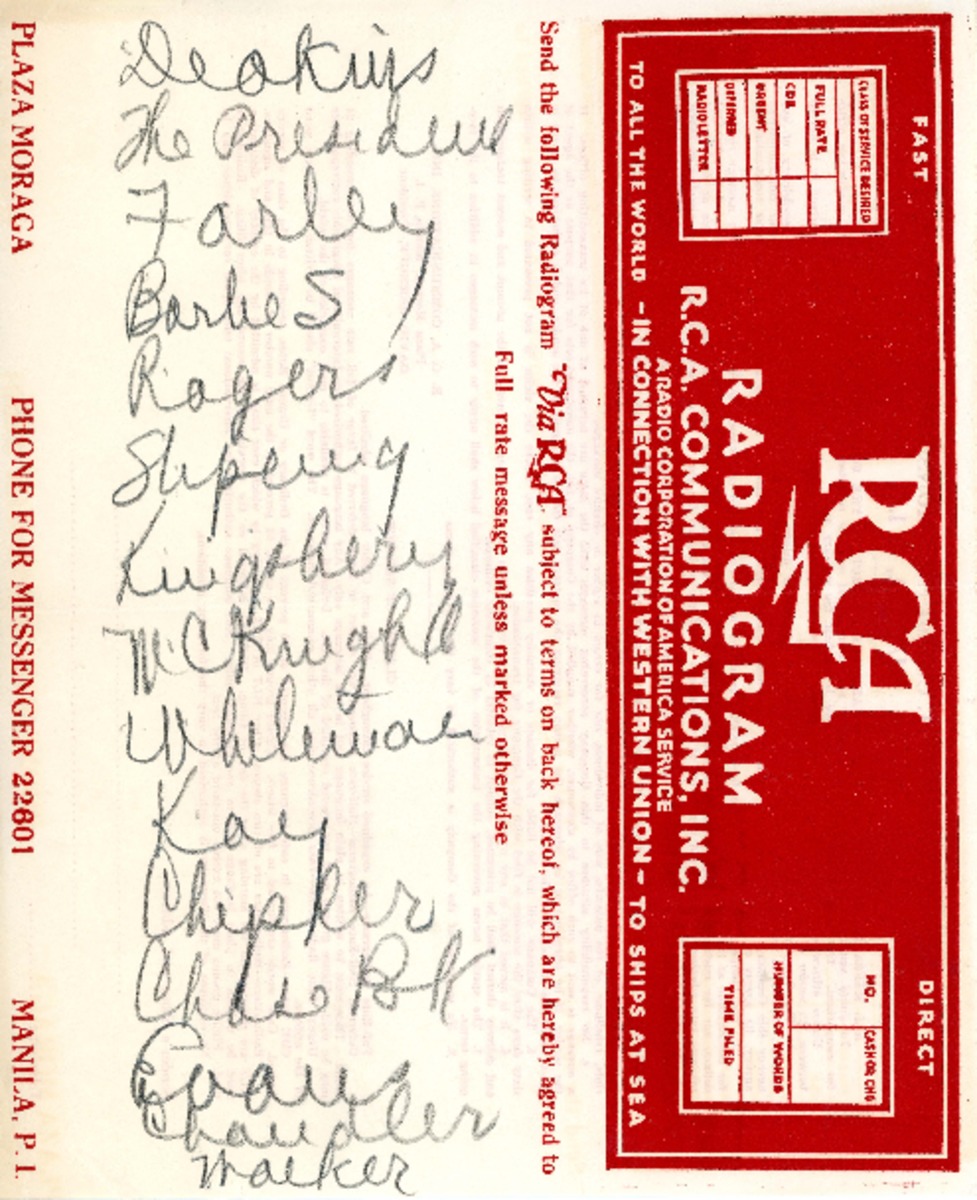 FAST
RCA
DIRECT
RADIOGRAM
R.C.A. COMMUNICATIONS, INC.
A RADIO CORPORATION OF AMERICA SERVICE
TO ALL THE WORLD - IN CONNECTION WITH WESTERN UNION - TO SHIPS AT SEA
CLASS OF SERVICE DESIRED
FULL RATE
CDE
URGENT
DEFERRED
RADIOLETTER
NO. CASH OR CHG
NUMBER OF WORDS
TIME FILED
Send the following Radiogram "Via RCA" subject to terms on back hereof, which are hereby agreed to
Full rate message unless marked otherwise
Deakins
The President
Farley
Barbes
Rogers
Kingsbery
McKnight
Whileman
Kay
Chipler
Chase Bk
Evans
Chandler
PLAZA MORAGA PHONE FOR MESSENGER 22601 MANILA, P. I.